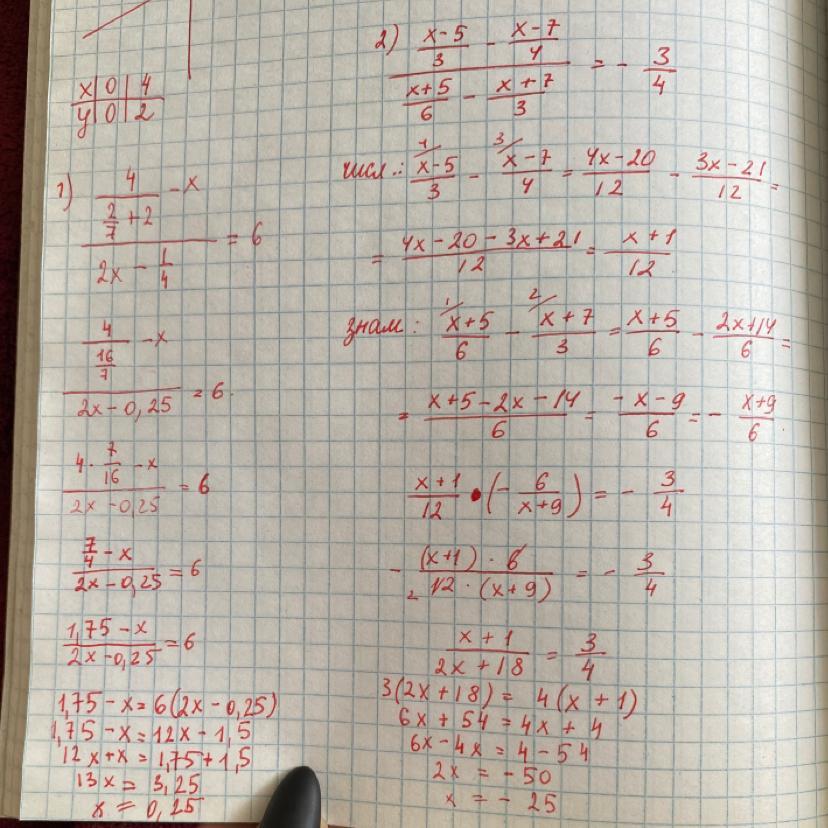 x | 0 | 4
y | 0 | 2
1) (4/(2/7 + 2) - x)/(2x - 1/4) = 6
(4/(16/7) - x)/(2x - 0,25) = 6.
(4 · 7/16 - x)/(2x - 0,25) = 6
(7/4 - x)/(2x - 0,25) = 6
(1,75 - x)/(2x - 0,25) = 6
1,75 - x = 6(2x - 0,25)
1,75 - x = 12x - 1,5
12x + x = 1,75 + 1,5
13x = 3,25
x = 0,25
2) ((x-5)/3 - (x-7)/4)/((x+5)/6 - (x+7)/3) = - 3/4
числ.: 4/ (x-5)/3 - 3/ (x-7)/4 = (4x-20)/12 - (3x-21)/12 =
= (4x - 20 - 3x + 21)/12 = (x+1)/12.
знам: 1/ (x+5)/6 - 2/ (x+7)/3 = (x+5)/6 - (2x+14)/6 =
= (x+5-2x-14)/6 = (-x-9)/6 = - (x+9)/6.
(x+1)/12 • (- 6/(x+9)) = - 3/4
- ((x+1) · 6)/(2 12 · (x+9)) = - 3/4
(x+1)/(2x+18) = 3/4
3(2x+18) = 4(x+1)
6x + 54 = 4x + 4
6x - 4x = 4 - 54
2x = - 50
x = - 25